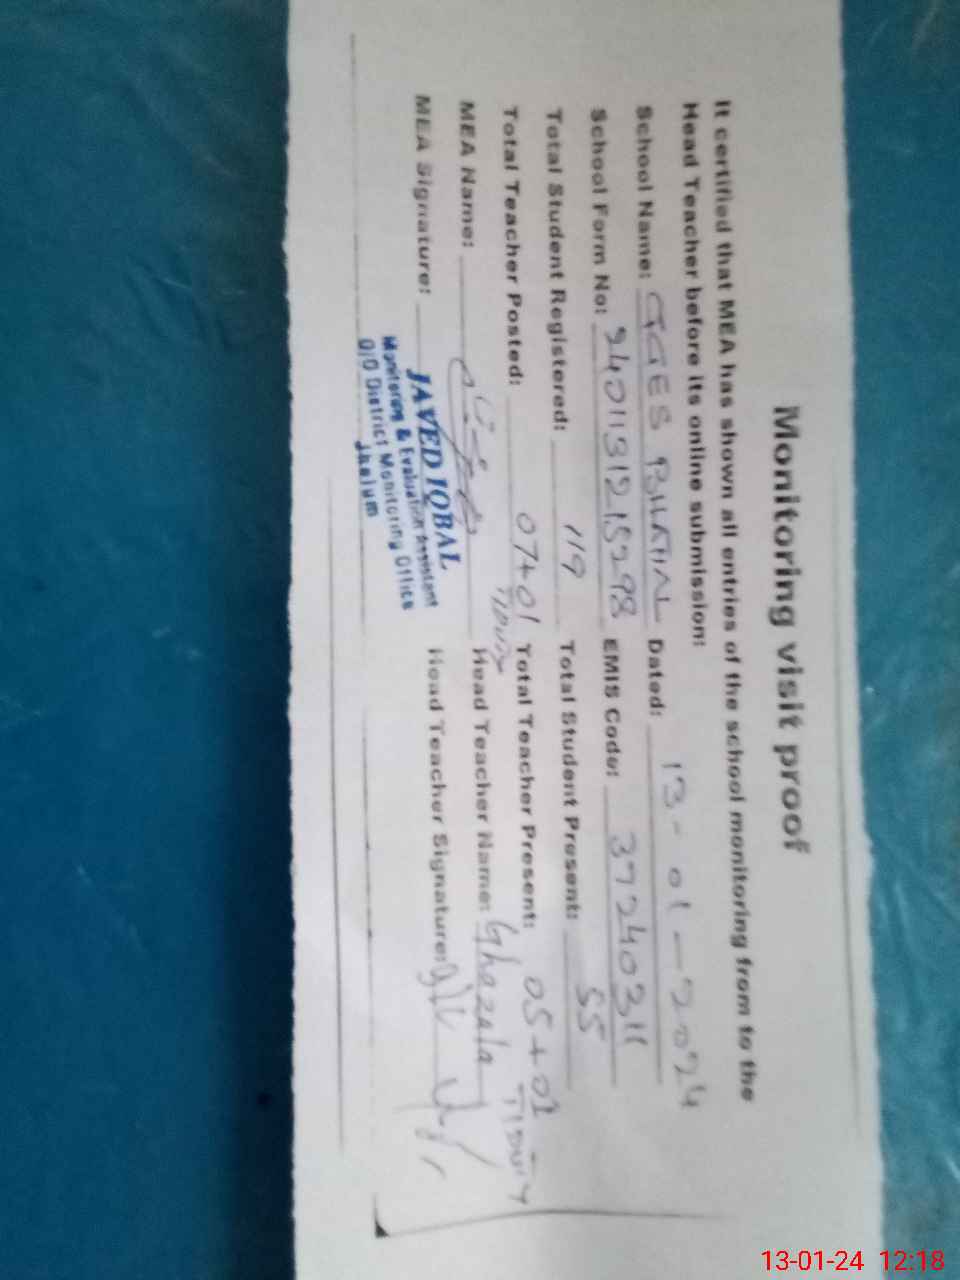 Monitoring visit proof
It certified that MEA has shown all entries of the school monitoring from to the
Head Teacher before its online submission:
School Name: GGES Dated: 13-01-2024
School Form No: 9401131215298 EMIS Code: 37240311
Total Student Registered: 119 Total Student Present: 55
Total Teacher Posted: 07+01 Total Teacher Present: 05+01
MEA Name: Head Teacher Name: Ghazala
MEA Signature: Head Teacher Signature:
JAVED IQBAL
Monitoring & Evaluation Assistant
O/O District Monitoring Office
Jhelum
13-01-24 12:18